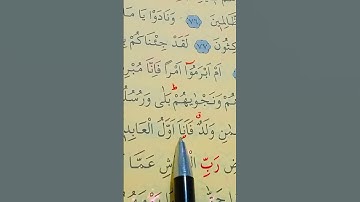 الظَّالِمِينَ ﴿٧٦﴾ وَنَادَوْا يَا مَا
كِثُونَ ﴿٧٧﴾ لَقَدْ جِئْنَاكُمْ
اَمْ اَبْرَمُوٓا اَمْرًا فَاِنَّا مُبْرِ
هُمْ وَنَجْوٰيهُمْ بَلٰى وَرُسُلُ
مٰنِ وَلَدٌ فَاَنَا اَوَّلُ الْعَابِدِ
ضِ رَبِّ الْعَرْشِ عَمَّا